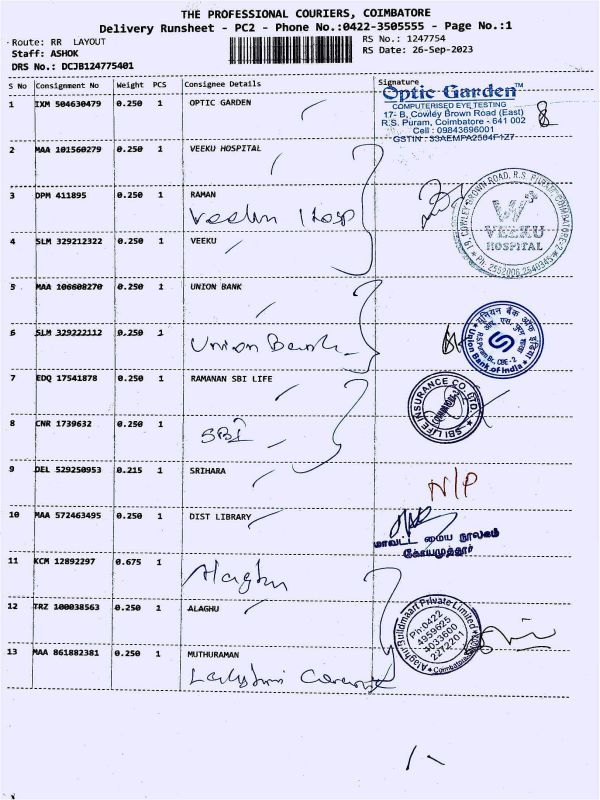 THE PROFESSIONAL COURIERS, COIMBATORE
Delivery Runsheet - PC2 - Phone No.:0422-3505555 - Page No.:1
Route: RR LAYOUT
RS No.: 1247754
Staff: ASHOK
RS Date: 26-Sep-2023
DRS No.: DCJB124775401
S No Consignment No Weight PCS Consignee Details Signature
1 IXM 504630479 0.250 1 OPTIC GARDEN
Optic Garden™
COMPUTERISED EYE TESTING
17- B, Cowley Brown Road (East)
R.S. Puram, Coimbatore - 641 002
Cell : 09843696001
GSTIN : 33AEMPA2504F1Z7
2 MAA 101560279 0.250 1 VEEKU HOSPITAL
3 DPM 411895 0.250 1 RAMAN
Veeku Hosp
19, COWLEY BROWN ROAD, R.S. PURAM, COIMBATORE-2
VEEKU
HOSPITAL
Ph: 2552006, 2540345
4 SLM 329212322 0.250 1 VEEKU
5 MAA 106608270 0.250 1 UNION BANK
6 SLM 329222112 0.250 1
Union Bank
यूनियन बैंक ऑफ इंडिया
R.S.Puram Br., CBE - 2
Union Bank of India
7 EDQ 17541878 0.250 1 RAMANAN SBI LIFE
SBI LIFE INSURANCE CO. LTD.
8 CNR 1739632 0.250 1
SBI
9 DEL 529250953 0.215 1 SRIHARA
N/P
10 MAA 572463495 0.250 1 DIST LIBRARY
மாவட்ட மைய நூலகம்
கோயமுத்தூர்
11 KCM 12892297 0.675 1
Alaghu
12 TRZ 100038563 0.250 1 ALAGHU
Alaghu Buildmaart Private Limited
Ph:0422
4959625
4033600
2272201
Coimbatore
13 MAA 861882381 0.250 1 MUTHURAMAN
Lakshmi